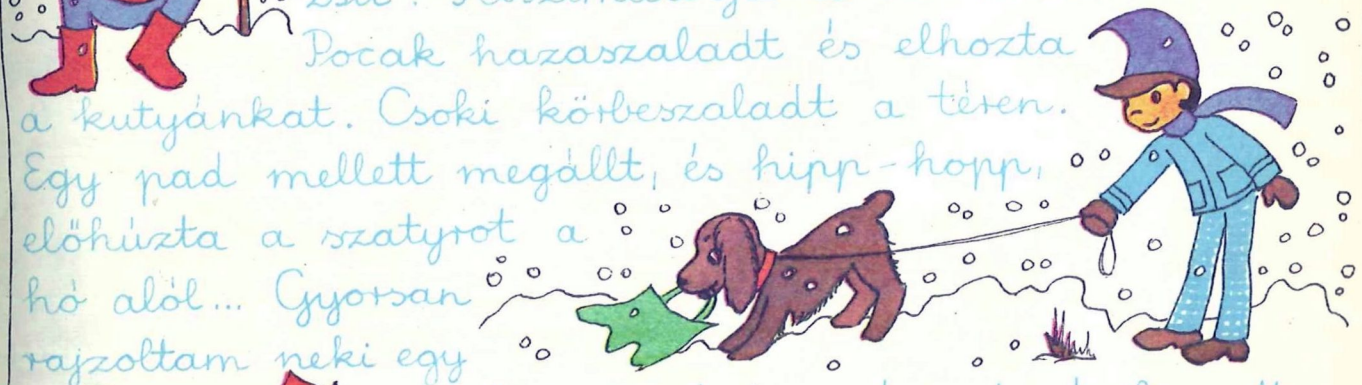 Pocak hazaszaladt és elhozta
a kutyánkat. Csoki körbeszaladt a téren.
Egy pad mellett megállt, és hipp-hopp,
előhúzta a szatyrot a
hó alól... Gyorsan
rajzoltam neki egy